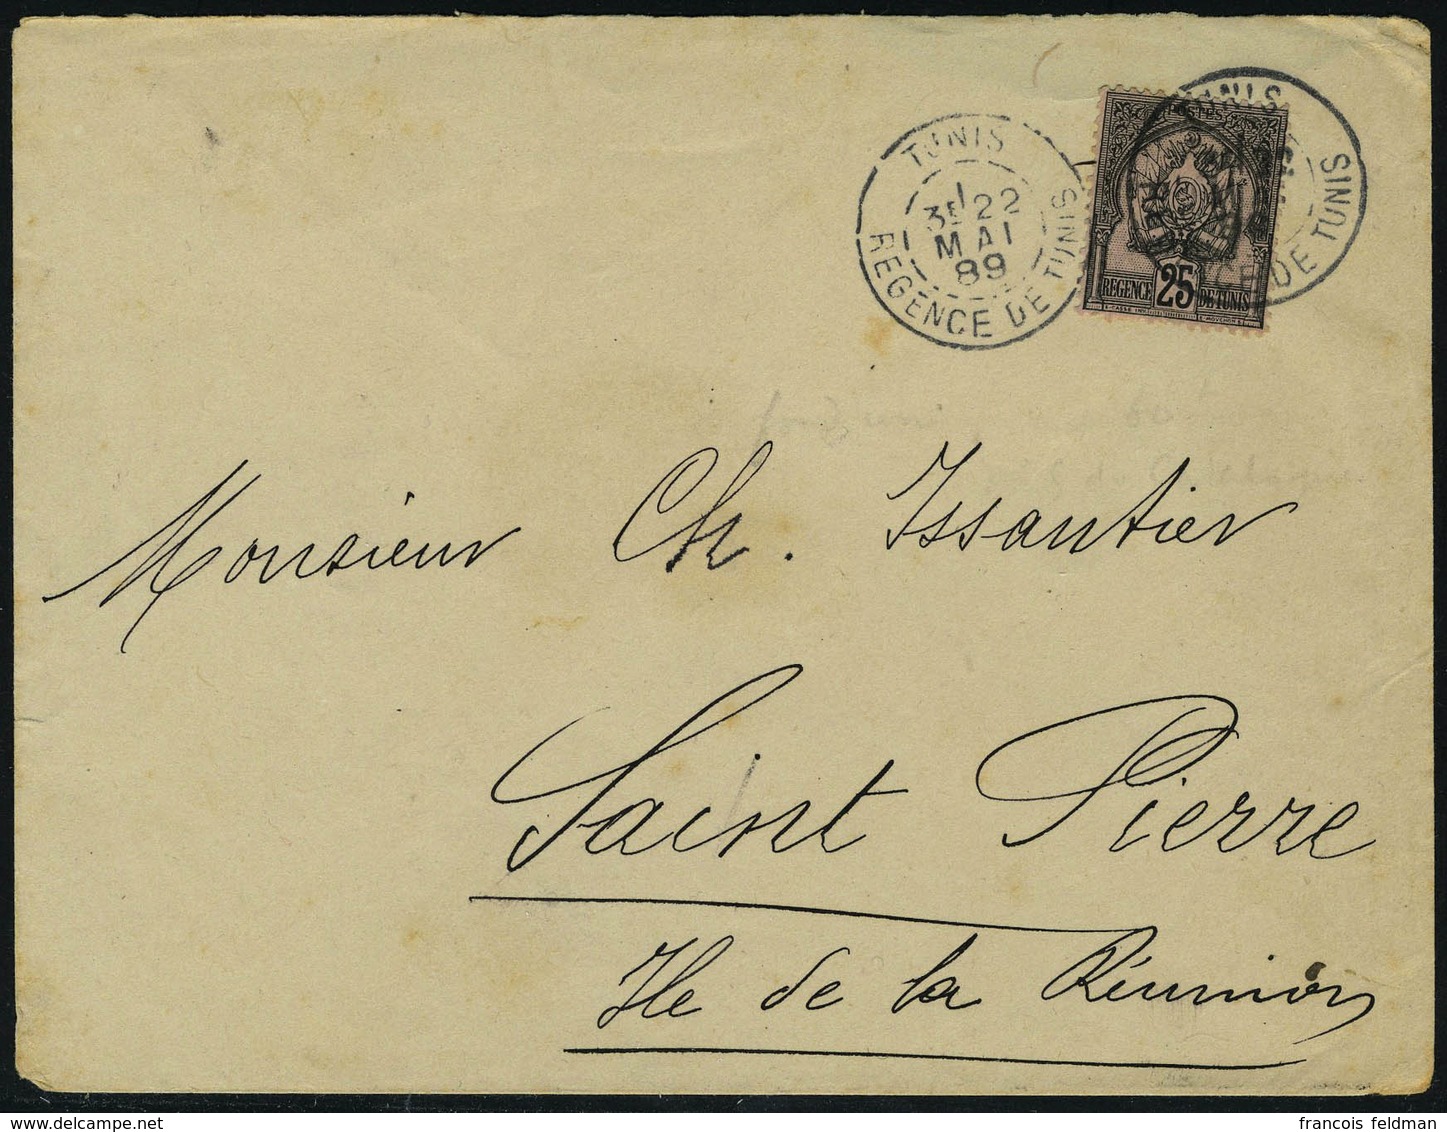 TUNIS
1
3E 22
MAI
89
REGENCE DE TUNIS
POSTES
25
REGENCE DE TUNIS
DE TUNIS
Monsieur Ch. Issantier
Saint Pierre
Ile de la Réunion
francois feldman